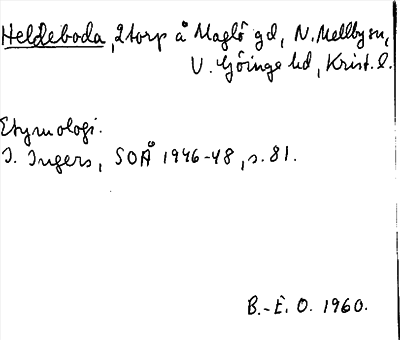 Heldeboda, 2 torp å Maglö gd, N. Mellby sn,
V. Göinge hd, Krist. l.
Etymologi.
I. Ingers, SOÅ 1946-48, s. 81.
B.-E. O. 1960.